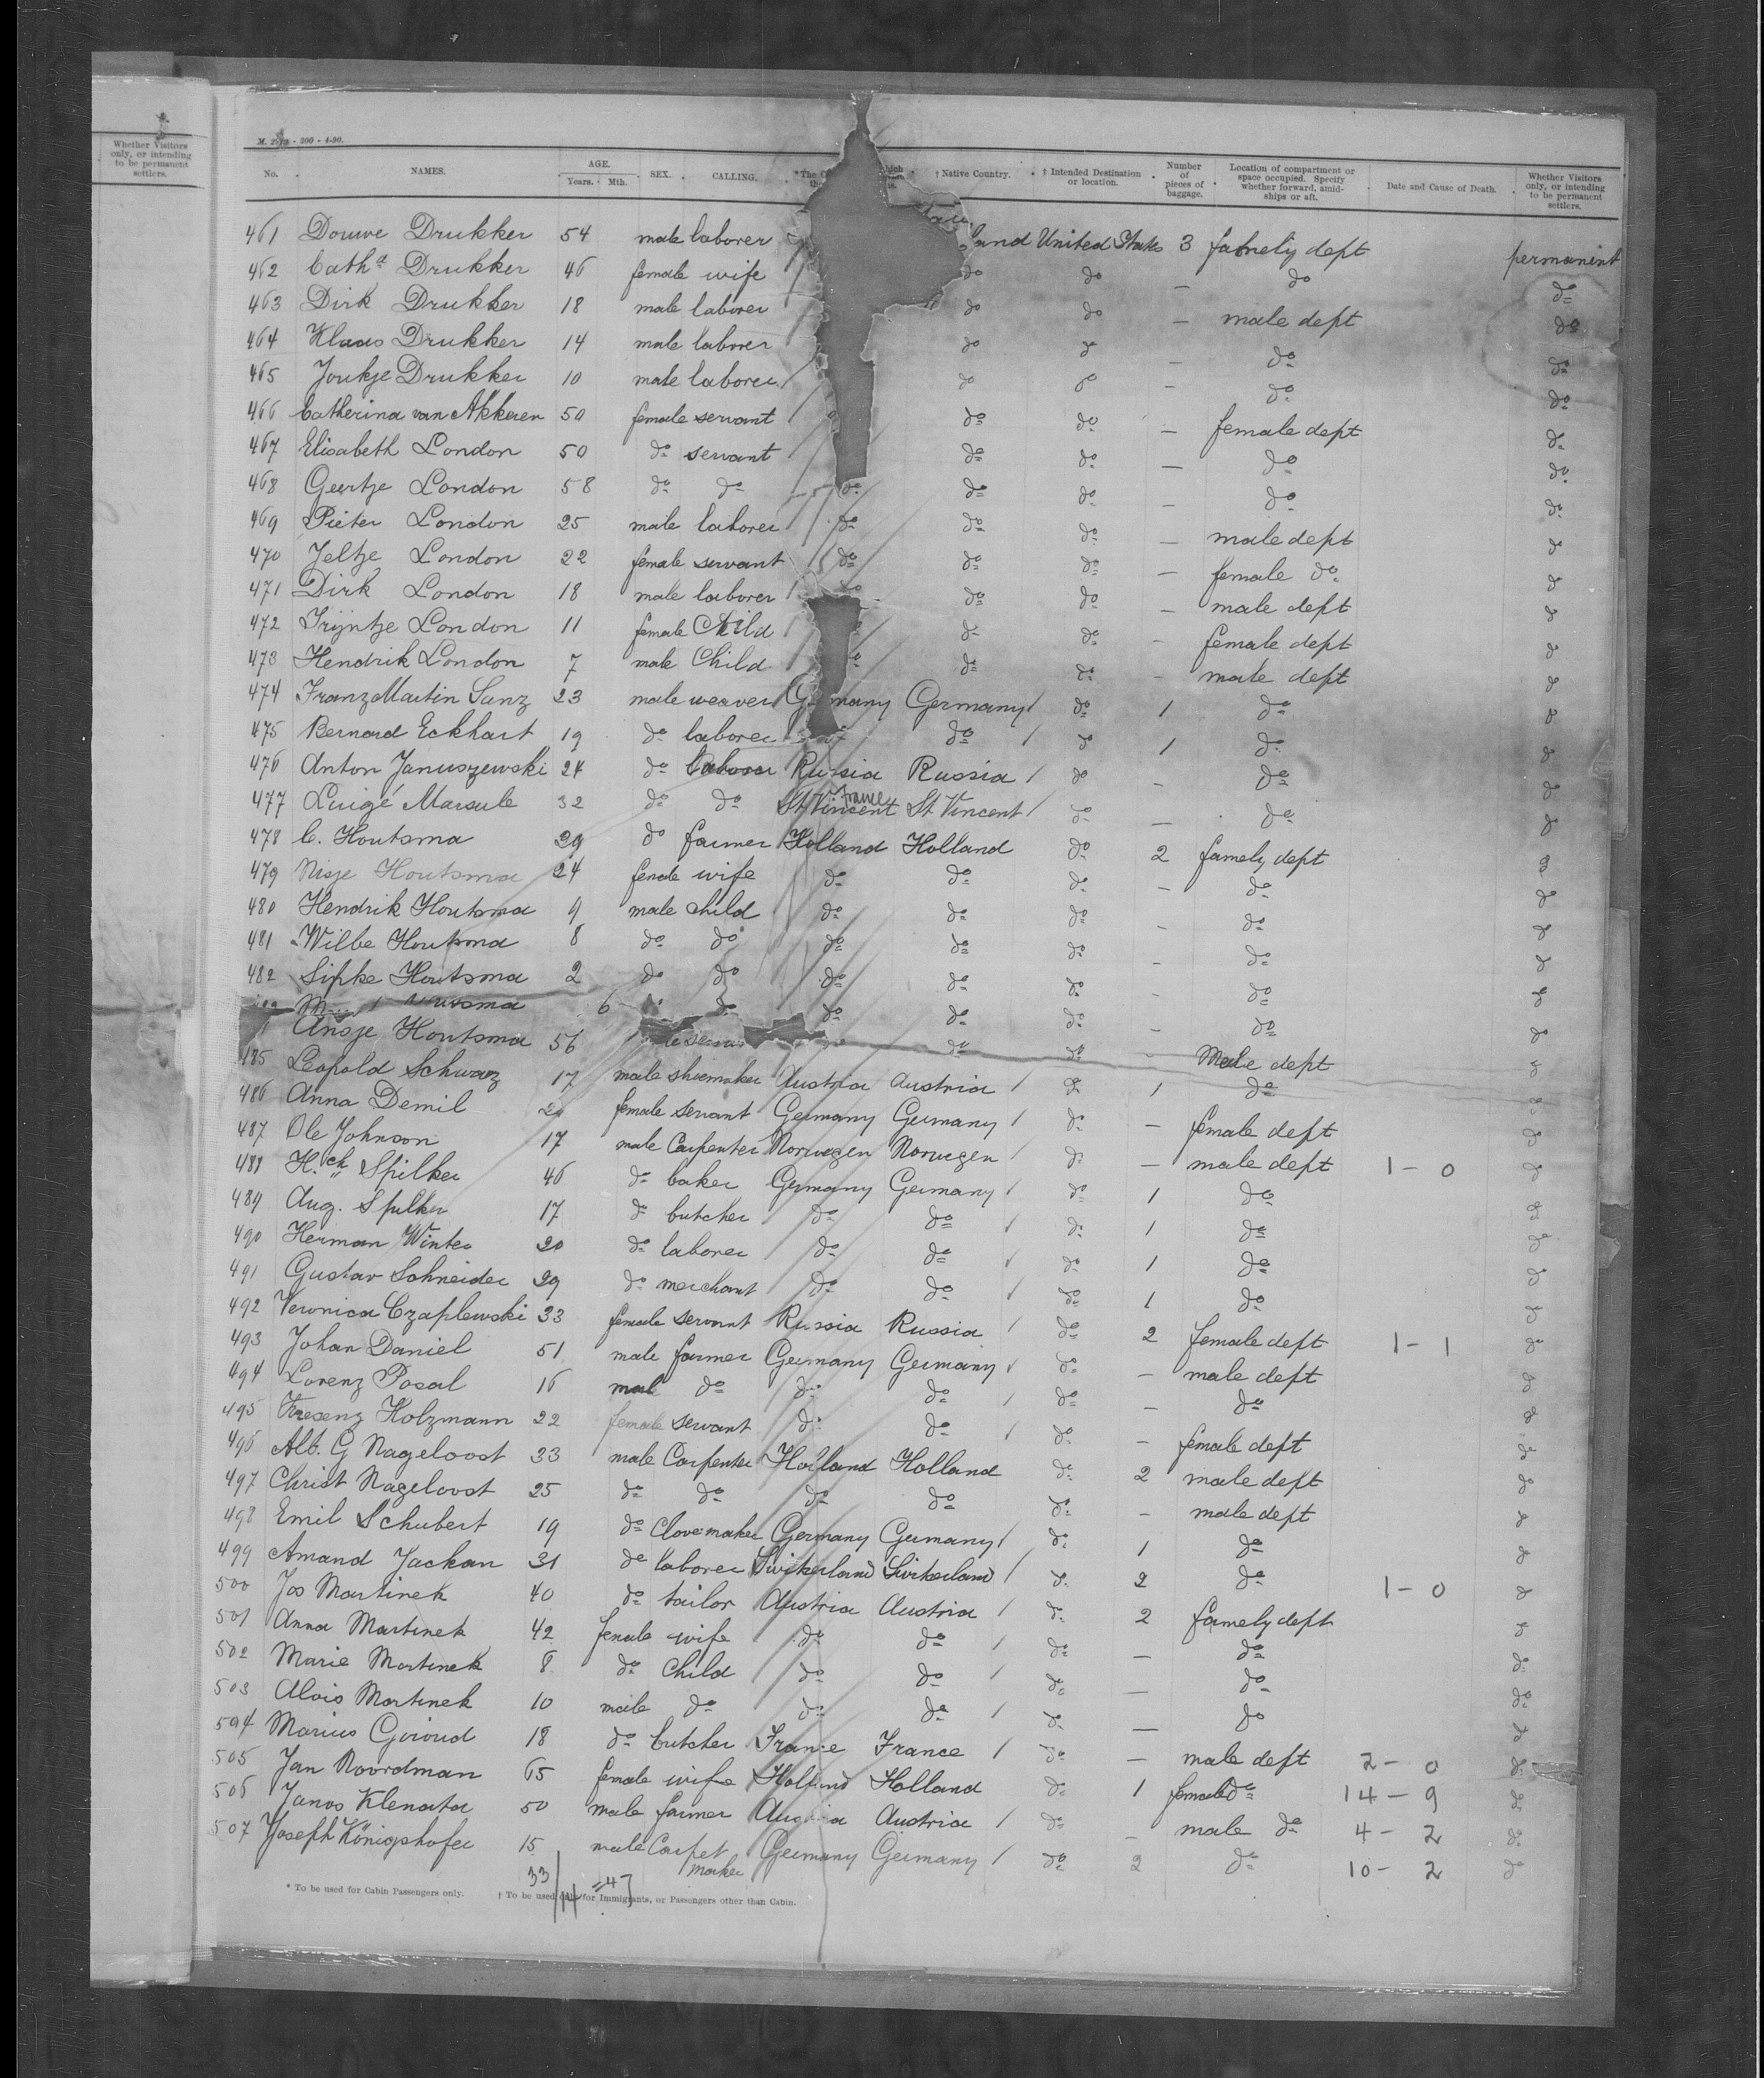 Whether Visitors only, or intending to be permanent settlers.
M. 2978 - 300 - 4-90.
No. NAMES. AGE. Years. Mth. SEX. CALLING. *The † Native Country. † Intended Destination or location. Number of pieces of baggage. Location of compartment or space occupied. Specify whether forward, amidships or aft. Date and Cause of Death. Whether Visitors only, or intending to be permanent settlers.
461 Douwe Drukker 54 male laborer land United States 3 famely dept permanent
462 Cath.a Drukker 46 female wife do do — do do
463 Dirk Drukker 18 male laborer do do — male dept do
464 Klaas Drukker 14 male laborer do do — do do
465 Joukje Drukker 10 male laborer do do — do do
466 Catherina van Akkeren 50 female servant do do — female dept do
467 Elisabeth London 50 do servant do do — do do
468 Geertje London 58 do do do do do — do do
469 Pieter London 25 male laborer do do do — male dept do
470 Jeltje London 22 female servant do do do — female do do
471 Dirk London 18 male laborer do do do — male dept do
472 Trijntje London 11 female Child do do - female dept do
473 Hendrik London 7 male Child do do do - male dept do
474 Franz Martin Sanz 23 male weaver Germany Germany do 1 do do
475 Bernard Eckhart 19 do laborer do do 1 do do
476 Anton Januszewski 24 do laborer Russia Russia do - do do
477 Luigé Marsule 32 do do St Vincent France St Vincent do — do do
478 C. Houtsma 29 do farmer Holland Holland do 2 famely dept do
479 Nisje Houtsma 24 female wife do do do - do do
480 Hendrik Houtsma 9 male child do do do - do do
481 Wilbe Houtsma 8 do do do do do - do do
482 Sipke Houtsma 2 do do do do do - do do
6 do do do do - do do
Ansje Houtsma 56 do do - Male dept do
485 Leopold Schwarz 17 male shoemaker Austria Austria do 1 do do
486 Anna Demil 24 female servant Germany Germany do — female dept do
487 Ole Johnson 17 male Carpenter Norwegen Norwegen do — male dept 1 - 0 do
488 H.ch Spilker 46 do baker Germany Germany do 1 do do
489 Aug. Spilker 17 do butcher do do do 1 do do
490 Herman Winter 20 do laborer do do do 1 do do
491 Gustav Schneider 29 do merchant do do do 1 do do
492 Veronica Czaplewski 33 female servant Russia Russia do 2 female dept 1 - 1 do
493 Johan Daniel 51 male farmer Germany Germany do — male dept do
494 Lorenz Posal 16 mal do do do do — do do
495 Kresenz Holzmann 22 female servant do do do - female dept do
496 Alb. G Nageloost 33 male Carpenter Holland Holland do 2 male dept do
497 Christ Nageloost 25 do do do do do - male dept do
498 Emil Schubert 19 do Clovemaker Germany Germany do 1 do do
499 Amand Jackan 31 do laborer Switkerland Switkerland do 2 do 1 - 0 do
500 Jos Martinek 40 do tailor Austria Austria do 2 famely dept do
501 Anna Martinek 42 female wife do do do — do do
502 Marie Martinek 8 do Child do do do — do do
503 Alois Martinek 10 male do do do do — do do
504 Marius Giroud 18 do butcher France France do — male dept 2 - 0 do
505 Jan Noordman 65 female wife Holland Holland do 1 female do 14 - 9 do
506 Janos Klenata 50 male farmer Austria Austria do - male do 4 - 2 do
507 Joseph Königshofer 15 male Carpet maker Germany Germany do 2 do 10 - 2 do
33/14 = 47
* To be used for Cabin Passengers only. † To be used only for Immigrants, or Passengers other than Cabin.